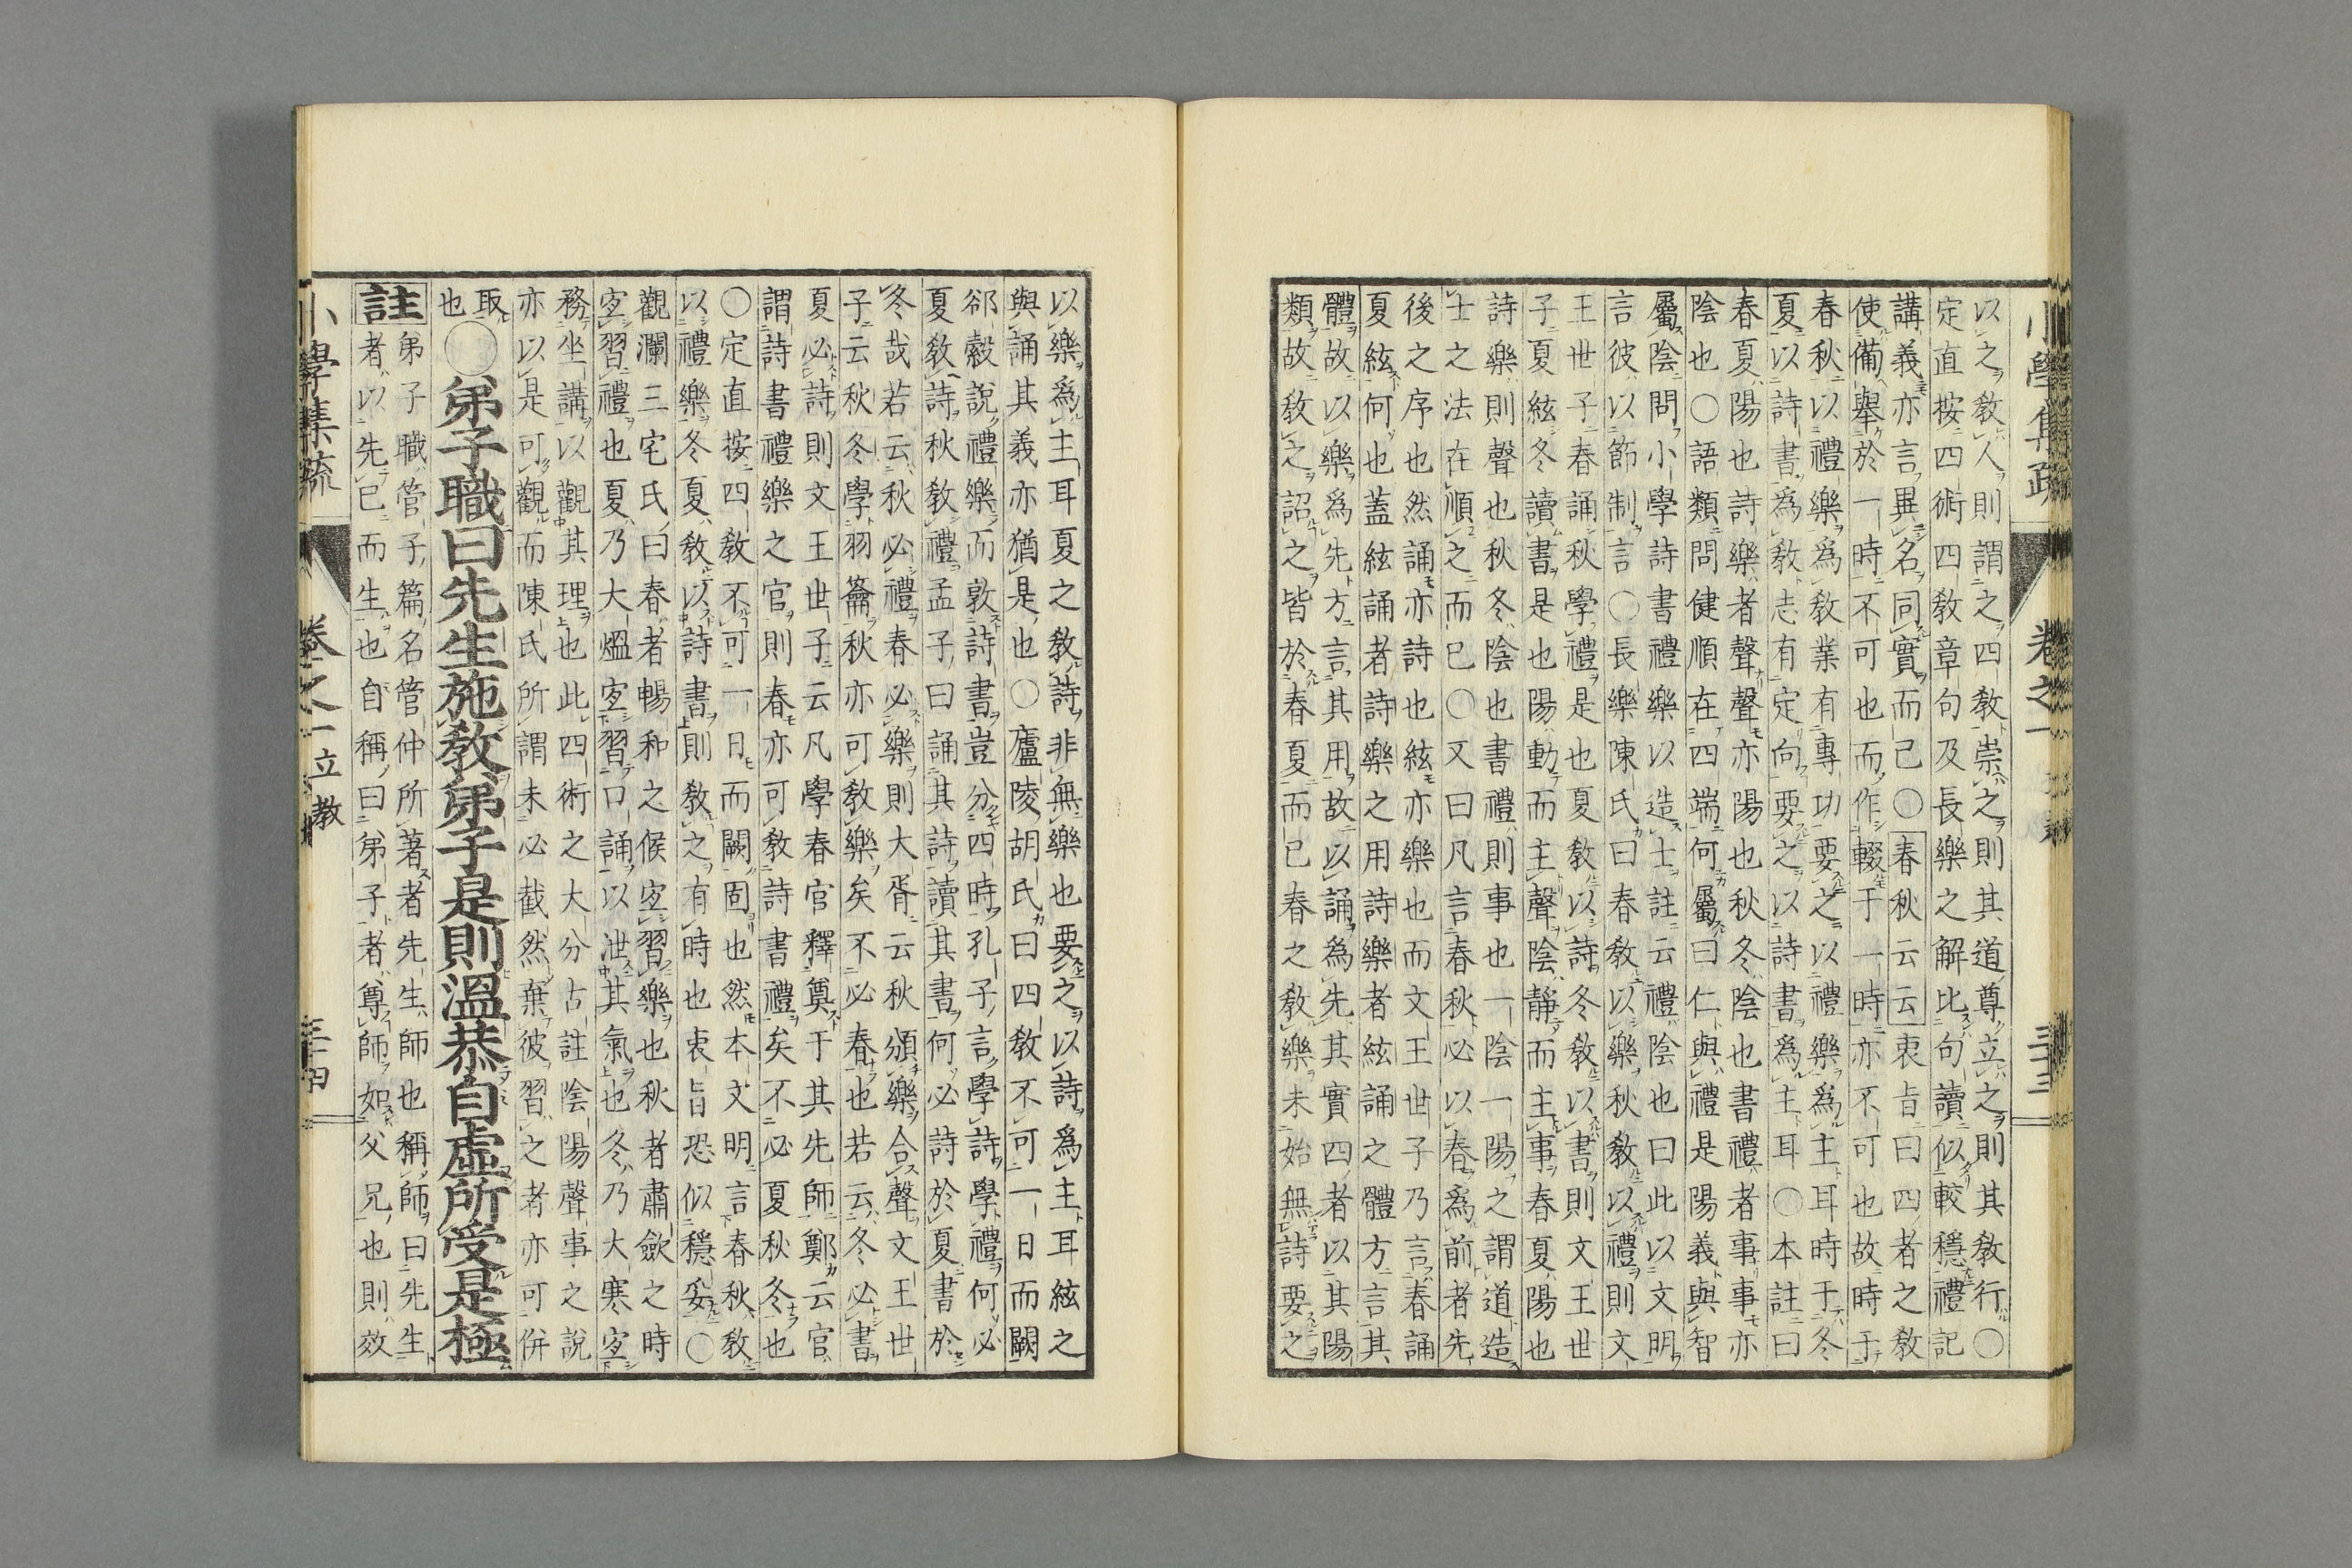 以之敎人則謂之四敎崇之則其道尊立之則其敎行○
定直按四術四敎章句及長樂之解比句讀似較穩禮記
講義亦言異名同實而已○春秋云云衷旨曰四者之敎
使備舉於一時不可也而作輟于一時亦不可也故時于
春秋以禮樂爲敎業有專功要之以禮樂爲主耳時于冬
夏以詩書爲敎志有定向要之以詩書爲主耳○本註曰
春夏陽也詩樂者聲聲亦陽也秋冬陰也書禮者事事亦
陰也○語類問健順在四端何屬曰仁與禮是陽義與智
屬陰問小學詩書禮樂以造士註云禮陰也曰此以文明
言彼以節制言○長樂陳氏曰春敎以樂秋敎以禮則文
王世子春誦秋學禮是也夏敎以詩冬敎以書則文王世
子夏絃冬讀書是也陽動而主聲陰靜而主事春夏陽也
詩樂則聲也秋冬陰也書禮則事也一陰一陽之謂道造
士之法在順之而已○又曰凡言春秋必以春爲前者先
後之序也然誦亦詩也絃亦樂也而文王世子乃言春誦
夏絃何也蓋絃誦者詩樂之用詩樂者絃誦之體方言其
體故以樂爲先方言其用故以誦爲先其實四者以其陽
類故敎之詔之皆於春夏而已春之敎樂未始無詩要之
小學集疏 卷之一 三十三
以樂爲主耳夏之敎詩非無樂也要之以詩爲主耳絃之
與誦其義亦猶是也○廬陵胡氏曰四敎不可一日而闕
郤縠說禮樂而敦詩書豈分四時孔子言學詩學禮何必
夏敎詩秋敎禮孟子曰誦其詩讀其書何必詩於夏書於
冬哉若云秋必禮春必樂則大胥云秋頒樂合聲文王世
子云秋冬學羽籥秋亦可敎樂矣不必春也若云冬必書
夏必詩則文王世子云凡學春官釋奠于其先師鄭云官
謂詩書禮樂之官則春亦可敎詩書禮矣不必夏秋冬也
○定直按四敎不可一日而闕固也然本文明言春秋敎
以禮樂冬夏敎以詩書則敎之有時也衷旨恐似穩妥○
觀瀾三宅氏曰春者暢和之候宜習樂也秋者肅歛之時
宜習禮也夏乃大熅宜習口誦以泄其氣也冬乃大寒宜
務坐講以觀其理也此四術之大分古註陰陽聲事之說
亦以是可觀而陳氏所謂未必截然棄彼習之者亦可併
取也○弟子職曰先生施敎弟子是則溫恭自虛所受是極
註弟子職管子篇名管仲所著者先生師也稱師曰先生
者以先已而生也自稱曰弟子者尊師如父兄也則效
小學集疏 卷之一 立敎 三十四